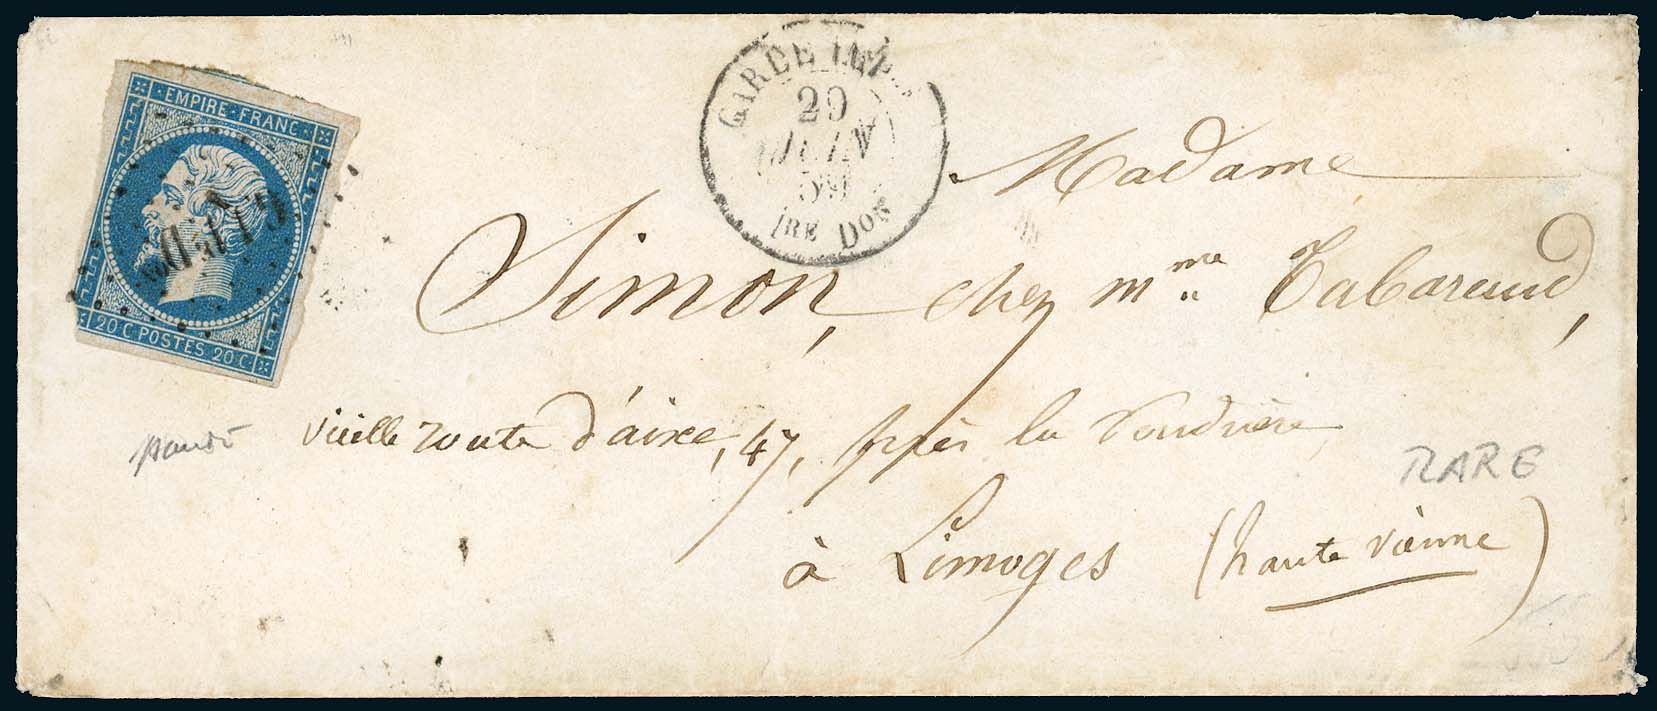 EMPIRE · FRANC ·
20 C · POSTES 20 C ·
GARDE IMP
29
JUIN
59
1RE DON
Madame
Simon, chez mme Tabaraud,
vieille route d'aixe, 47, près la
RARE
à Limoges (haute vienne)